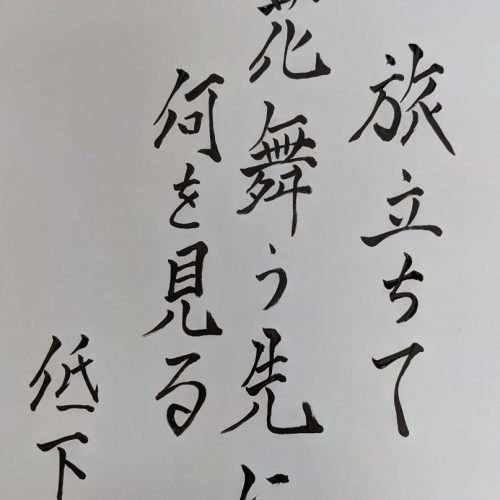 旅立ちて
花舞う先に
何を見る
低下